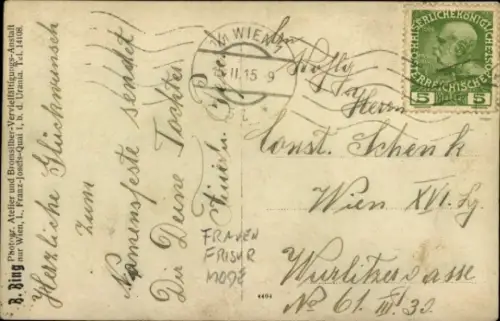 B. Bing Photogr. Atelier und Bromsilber-Vervielfältigungs-Anstalt
nur Wien, I., Franz-Josefs-Quai 1, b. d. Urania. Tel. 14108.
Herzliche Glückwunsch
zum
Namensfeste sendet
Dir Deine Tochter
FRAUEN
FRISUR
MODE
4494
WIEN
II 15 9
KAISERLICHE KÖNIGLICHE
ÖSTERREICHISCHE
5 5
Herrn
Const. Schenk
Wien XVI. Lg.
Wurlitzergasse
No 61. III 32